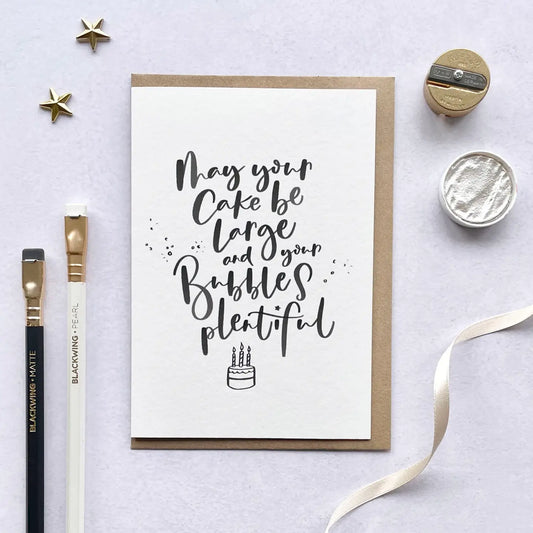 May your
Cake be
large
and your
Bubbles
plentiful
BLACKWING • MATTE
BLACKWING • PEARL